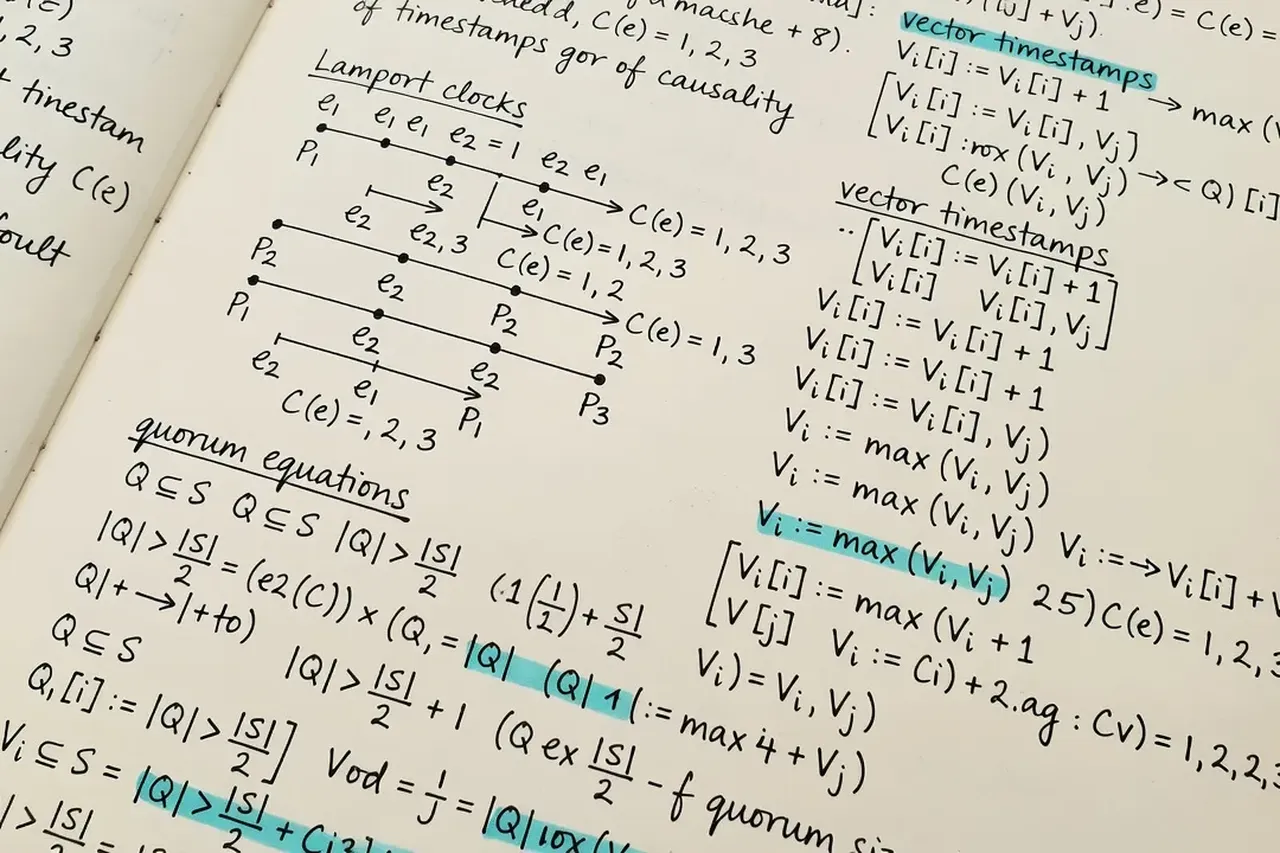 , 2, 3
tinestam
lity C(e)
oult
macshe + 8).
C(e) = 1, 2, 3
of timestamps gor of causality
Lamport clocks
e1 e1 e1 e2 = 1 e2 e1
P1
e2 e1 C(e) = 1, 2, 3
e2 e2, 3 C(e) = 1, 2, 3
C(e) = 1, 2
P2 e2 P2 C(e) = 1, 3
P2
P1 e2 e2 P3
e2 e1 P1
C(e) =, 2, 3
quorum equations
Q ⊆ S Q ⊆ S |Q| > |S|/2
|Q| > |S|/2 = (e2(C)) × (Q, = |Q| (Q| 1 (:= max 4 + Vj)
(.1(1/2) + S|/2
Q| + → |+ to)
Q ⊆ S |Q| > |S|/2 + 1 (Q ex |S|/2 - f quorum
Q, [i] := |Q| > |S|/2] Vod = 1/J = |Q| 10x (V
Vi ⊆ S = |Q| > |S|/2 + Ci
| > |S|/2 =
.e) = C(e) =
+ Vj).
vector timestamps
Vi[i] := Vi[i] + 1 → max (
[Vi[i] := Vi[i], Vj)
[Vi[i] :rox (Vi, Vj) → < Q) [i]
C(e) (Vi, Vj)
vector timestamps
.. [Vi[i] := Vi[i] + 1]
[Vi[i] Vi[i], Vj]
Vi[i] := Vi[i] + 1
Vi[i] := Vi[i] + 1
Vi[i] := Vi[i], Vj)
Vi := max (Vi, Vj)
Vi := max (Vi, Vj) Vi := → Vi[i] +
Vi := max (Vi, Vj) 25) C(e) = 1, 2, 3
[Vi[i] := max (Vi + 1
[V[j] Vi := Ci) + 2.ag : Cv) = 1, 2, 2, 3
Vi) = Vi, Vj)